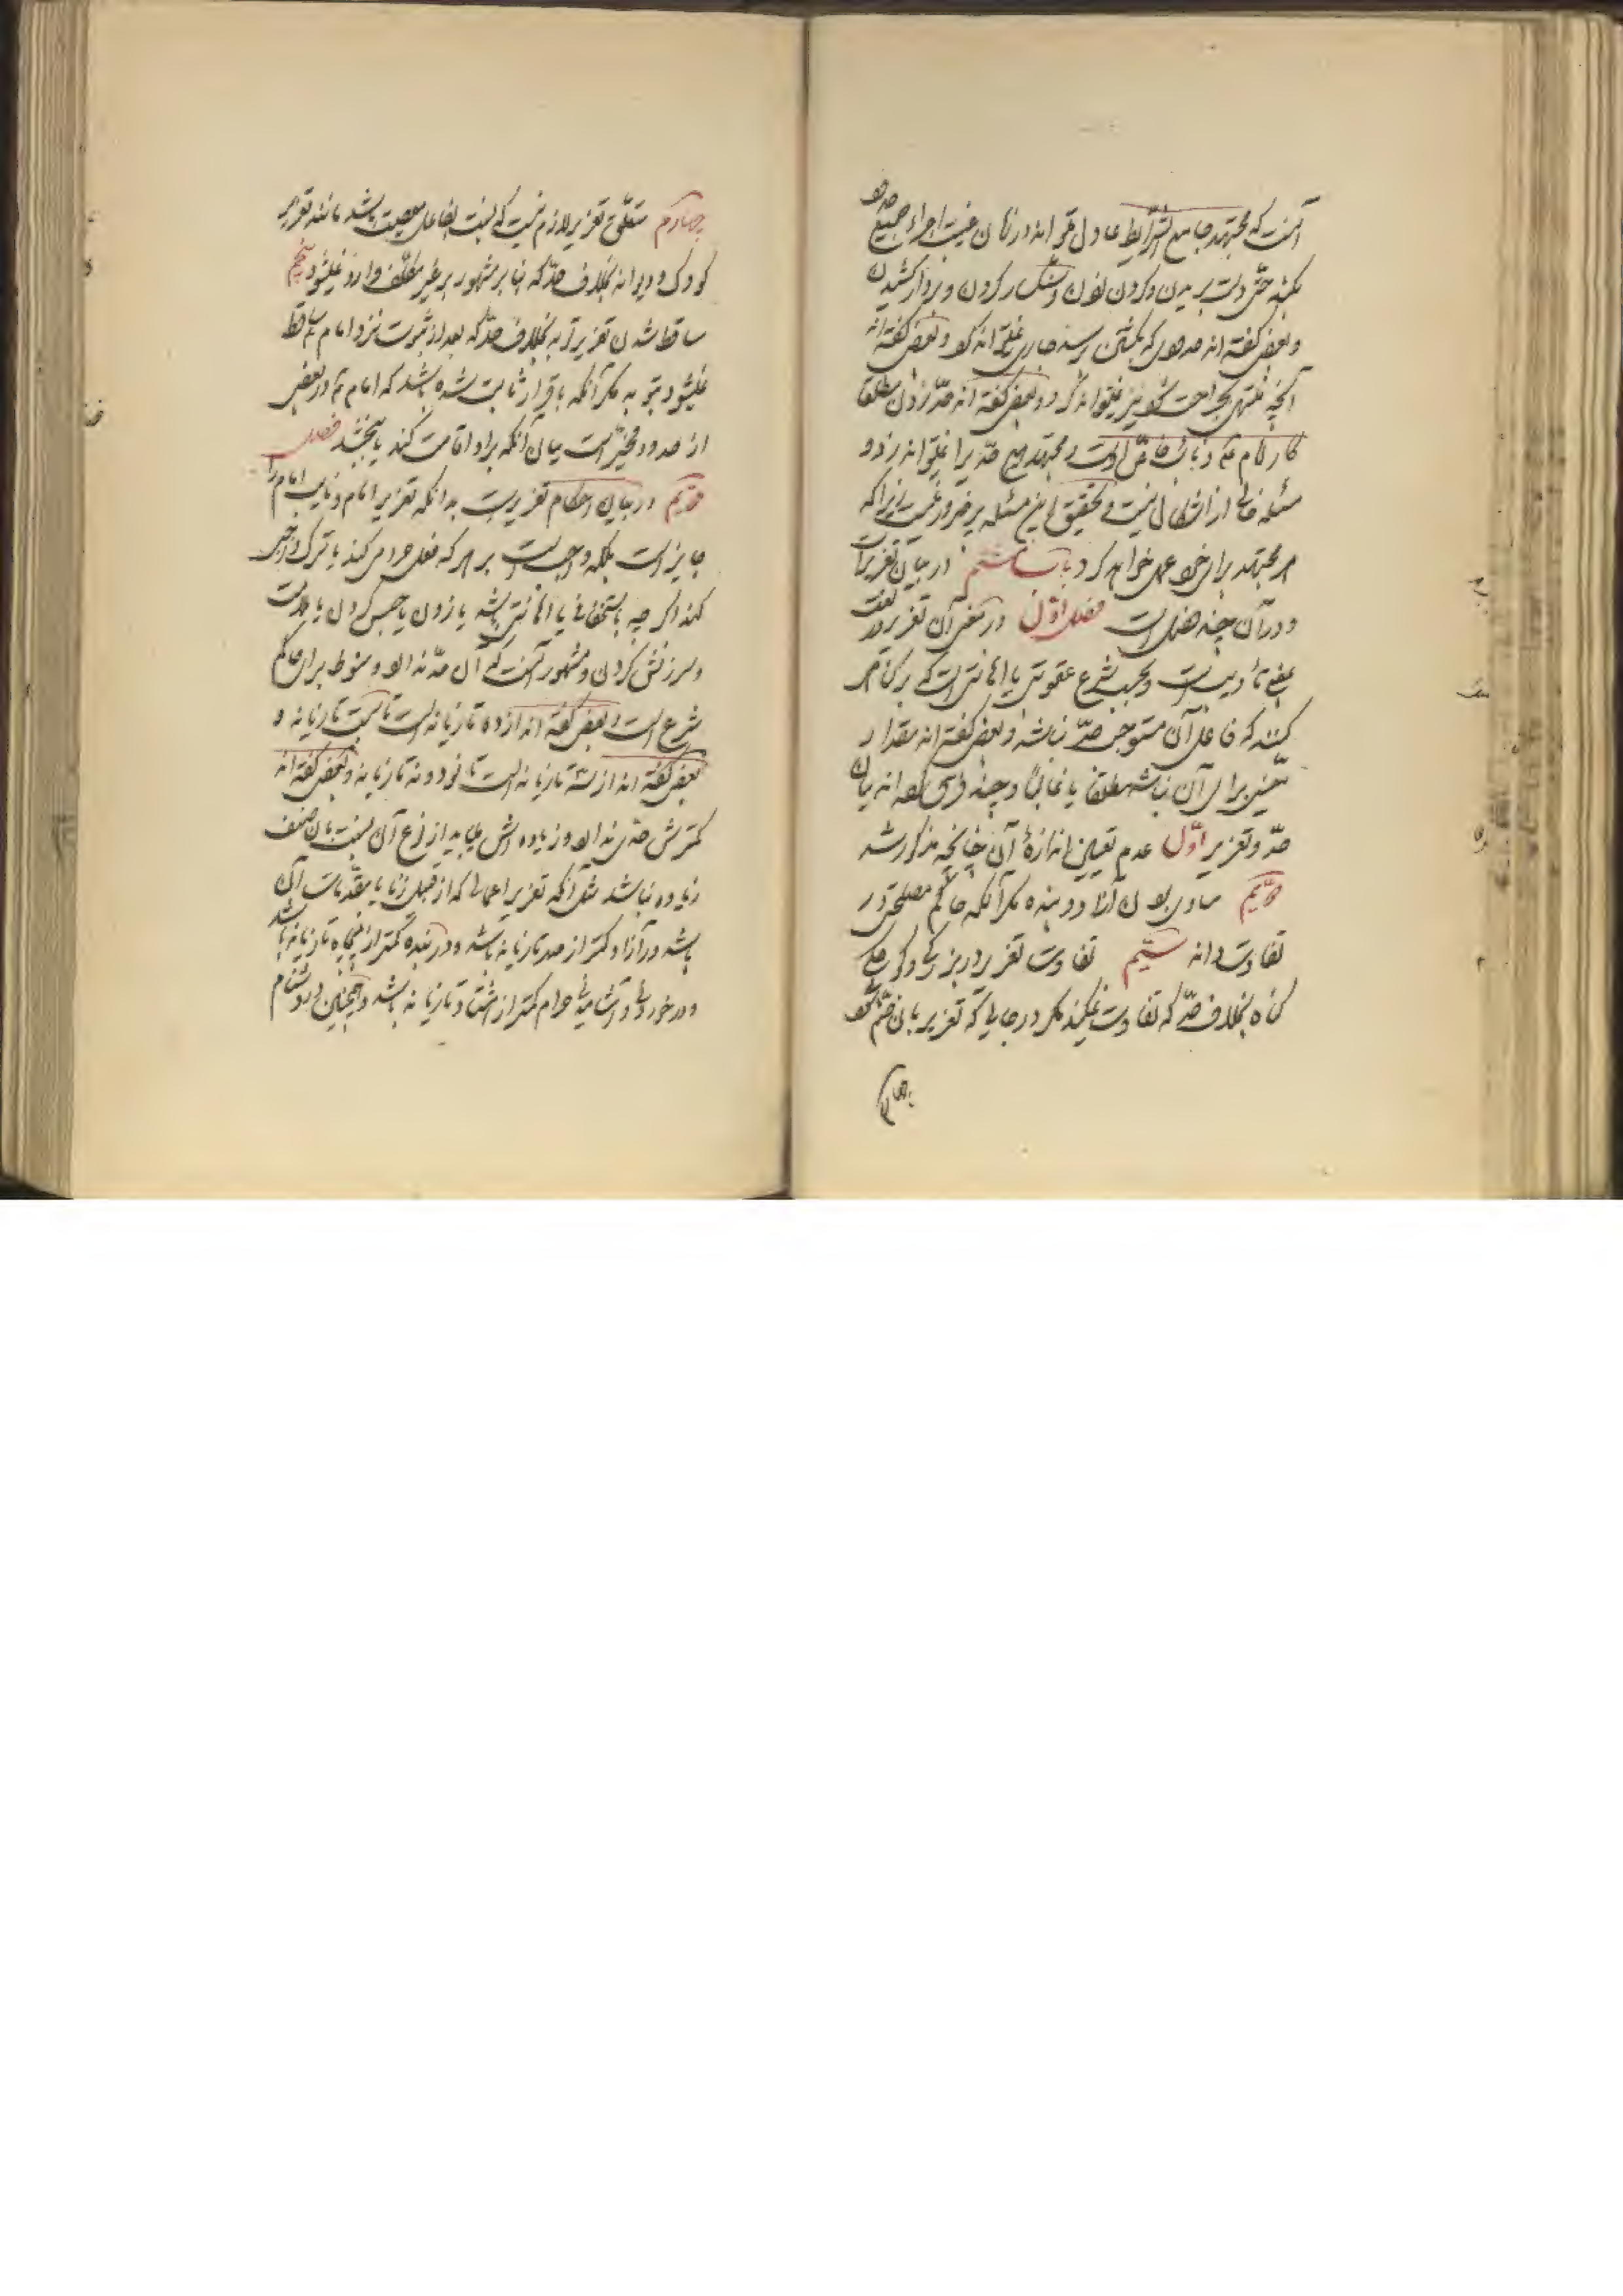 آنست که مجتهد جامع الشرایط عادل تواند در زمان غیبت اجراء جمیع حدود
بکند حتی دست بریدن و کردن زدن و سنکسار کردن و بر دار کشیدن
و بعضی کفته اند حدودی که بکشتن رسد جاری نمیتواند کرد و بعضی کفته اند
آنچه منتهی بجراحت شود نیز نمیتواند کرد و بعضی کفته اند حد زدن مطلقا
کار امام است و نایب خاص اوست و مجتهد هیچ حدی را نمیتواند زد و
مسئله خالی از اشکال نیست و تحقیق این مسئله پر ضرور نیست زیرا که
هر مجتهد برای خود عمل خواهد کرد باب ششم در بیان تعزیرات
و در آن چند فصل است فصل اول در معنی آن تعزیر در لغت
بمعنی تأدیب است و بحسب شرع عقوبتی یا اهانتی است که بر کناهی
کنند که فاعل آن مستوجب حد نباشد و بعضی کفته اند مقدار
معینی برای آن نباشد مطلقا یا غالبا و چند فرق کرده اند میان
حد و تعزیر اول عدم تعیین اندازهٔ آن چنانچه مذکور شد
دویم مساوی بودن آزاد و بنده مکر آنکه حاکم مصلحتی در
تفاوت داند سیم تفاوت تعزیر در بزرکی و کوچکی
کناه بخلاف حد که تفاوت نمیکند مکر در جایی که تعزیر بآن ضم شود
چهارم
چهارم متعلق تعزیر لازم نیست که نسبت بفاعل معصیت باشد مانند تعزیر
کودک و دیوانه بخلاف حد که بنا بر مشهور بر غیر مکلف وارد نمیشود پنجم
ساقط شدن تعزیر بتوبه بخلاف حد که بعد از ثبوت نزد امام ساقط
نمیشود بتوبه مکر آنکه باقرار ثابت شده باشد که امام در بعضی
از حدود مخیر است میان آنکه بر او اقامت کند یا ببخشد فصل
دویم در بیان احکام تعزیر است بدانکه تعزیر امام و نایب امام را
جایز است بلکه واجبست بر هر که فعل حرامی کند یا ترک واجبی
کند اکر چه باستخفافی یا اهانتی باشد یا زدن یا حبس کردن یا ملامت
و سرزنش کردن و مشهور آنست که آن حد ندارد و منوط برای حاکم
شرع است و بعضی کفته اند از ده تازیانه است تا بیست تازیانه و
بعضی کفته اند از سه تازیانه است تا نود و نه تازیانه و بعضی کفته اند
کمترش حدی ندارد و زیاده اش میباید از نوع آن نسبت بآن صنف
زیاده نباشد مثل آنکه تعزیر اعمالی که از قبیل زنا یا مقدمات آن
باشد در آزاد کمتر از صد تازیانه باشد و در بنده کمتر از پنجاه تازیانه باشد
و در خوردنی و آشامیدنی حرام کمتر از هشتاد تازیانه باشد و همچنین در دشنام